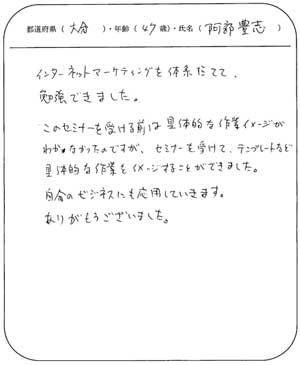 都道府県 ( 大分 )・年齢 ( 47 歳)・氏名 ( 阿部豊志 )
インターネットマーケティングを体系だてて、
勉強できました。
このセミナーを受ける前は具体的な作業イメージが
わかなかったのですが、セミナーを受けて、テンプレートなど
具体的な作業をイメージすることができました。
自分のビジネスにも応用していきます。
ありがとうございました。